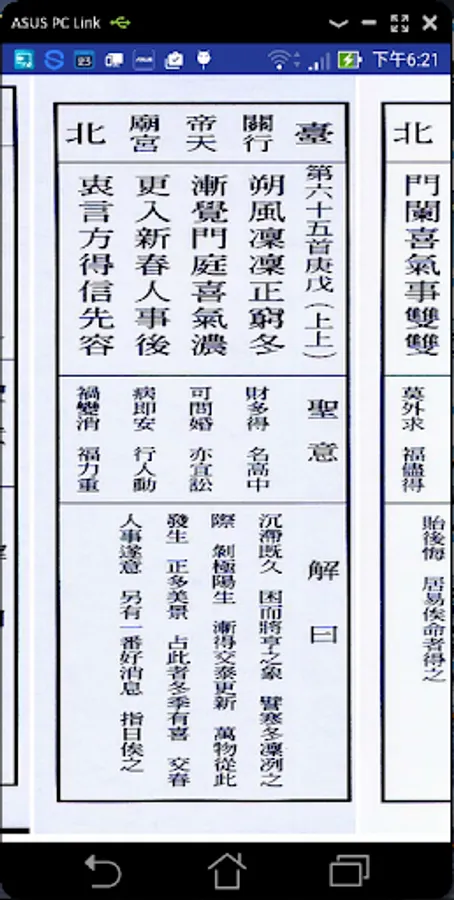 ASUS PC Link
下午6:21
北
門闌喜氣事雙雙
莫外求 福儘得
貽後悔 居易俟命者得之
臺
關行
帝天
廟宮
北
第六十五首庚戌(上上)
朔風凜凜正窮冬
漸覺門庭喜氣濃
更入新春人事後
衷言方得信先容
聖意
財多得 名高中
可問婚 亦宜訟
病即安 行人動
禍變消 福力重
解曰
沉滯既久 困而將亨之象 譬寒冬凜冽之
際 剝極陽生 漸得交泰更新 萬物從此
發生 正多美景 占此者冬季有喜 交春
人事遂意 另有一番好消息 指日俟之